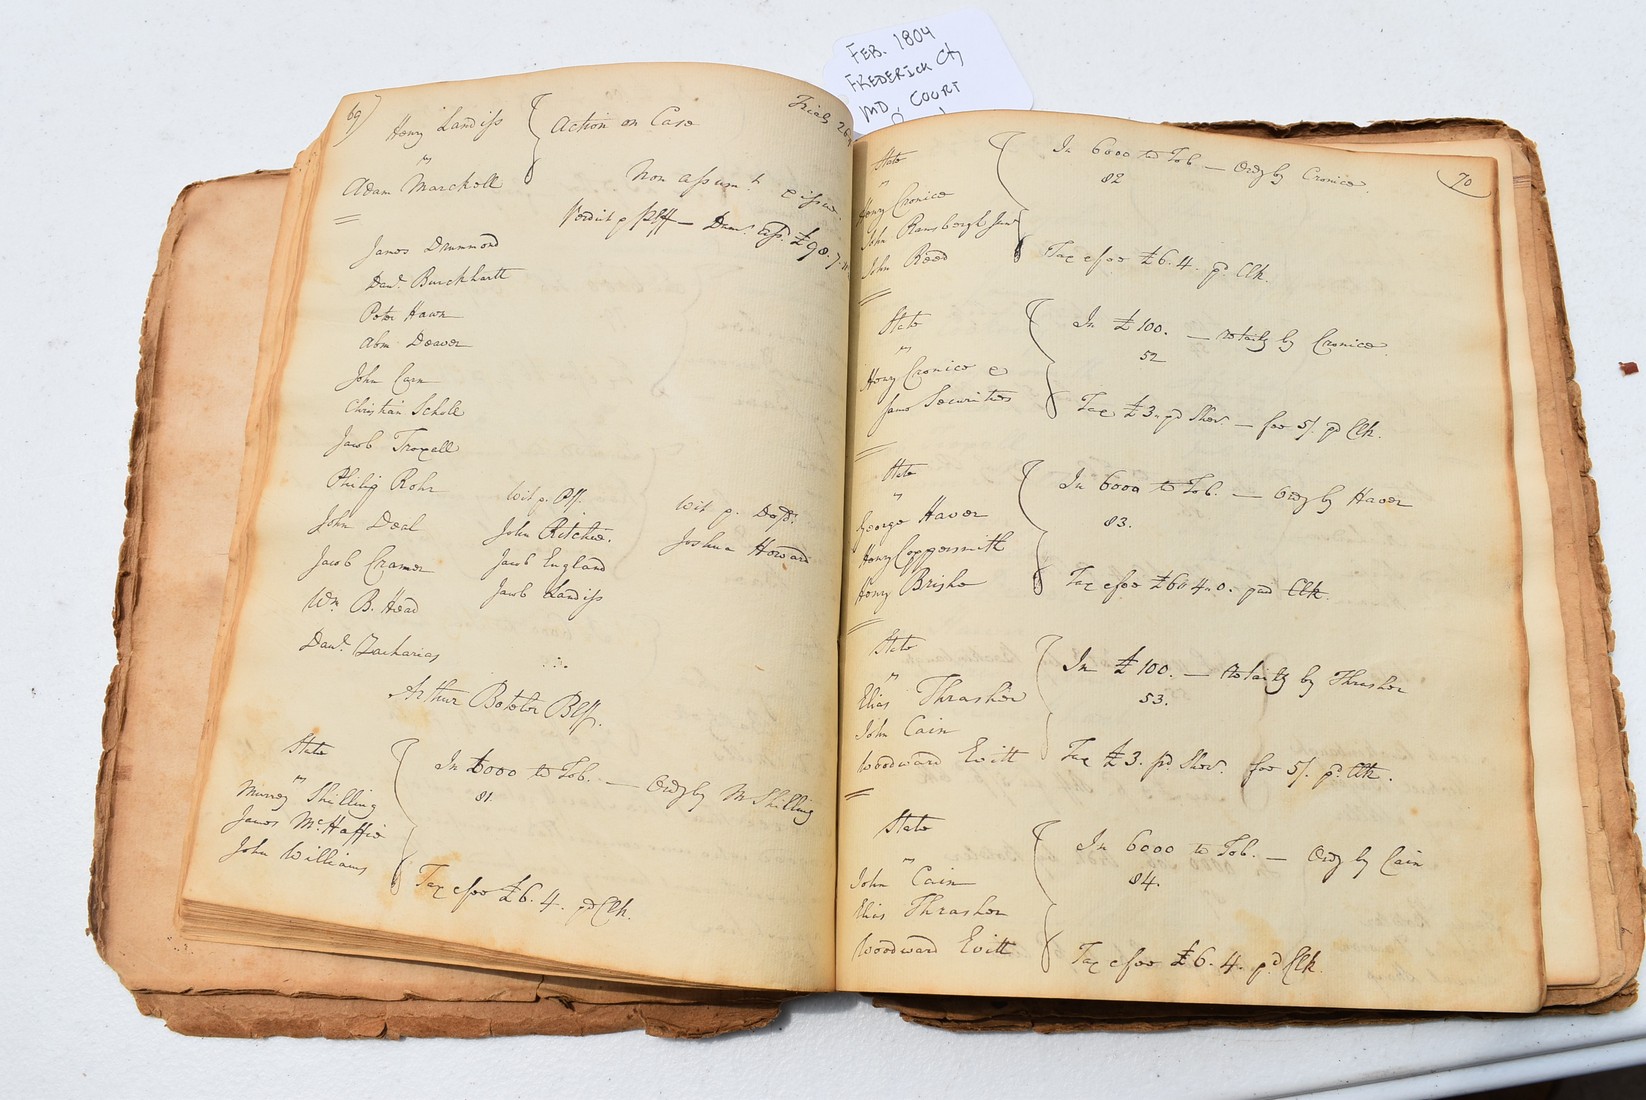 FEB. 1804
FREDERICK Cty
MD, COURT
69
Henry Landiss
vs
Adam Marckell
Action on Case
Trials 26
Non assumt. & issue.
Verdict p Plff — Dams. ass. £98.7.
James Drummond
Danl. Burckhartt
Peter Hawn
Abm. Deaver
John Carn
Christian Scholl
Jacob Troxell
Philip Rohr
John Deal
Jacob Cramer
Wm. B. Head
Danl. Zacharias
Wit p. Plf.
John Ritchie.
Jacob England
Jacob Landiss
Wit p. Deft.
Joshua Howard
Arthur Boteler Blff.
State
vs
Murrey Shilling
James McHaffie
John Williams
In 6000 lb Tob. — Ordy by M Shilling
81.
Tax & fee £6.4. pd Clk.
70
State
vs
Henry Cronice
John Ramsbergh Junr
John Reed
In 6000 lb Tob. — Ordy by Cronice.
82
Tax & fee £6.4. pd. Clk.
State
vs
Henry Cronice &
same Securities
In £100. — retailg by Cronice.
52
Tax £3. pd Sher. — fee 5/. pd Clk.
State
vs
George Haver
Henry Coppersmith
Henry Brisho
In 6000 lb Tob. — Ordy by Haver
83.
Tax & fee £6 4.0. pd Clk.
State
vs
Elias Thrasher
John Cain
Woodward Evitt
In £100. — retailg by Thrasher
53.
Tax £3. pd. Sher. fee 5/. pd. Clk.
State
vs
John Cain
Elias Thrasher
Woodward Evitt
In 6000 lb Tob. — Ordy by Cain
84.
Tax & fee £6.4. pd Clk.